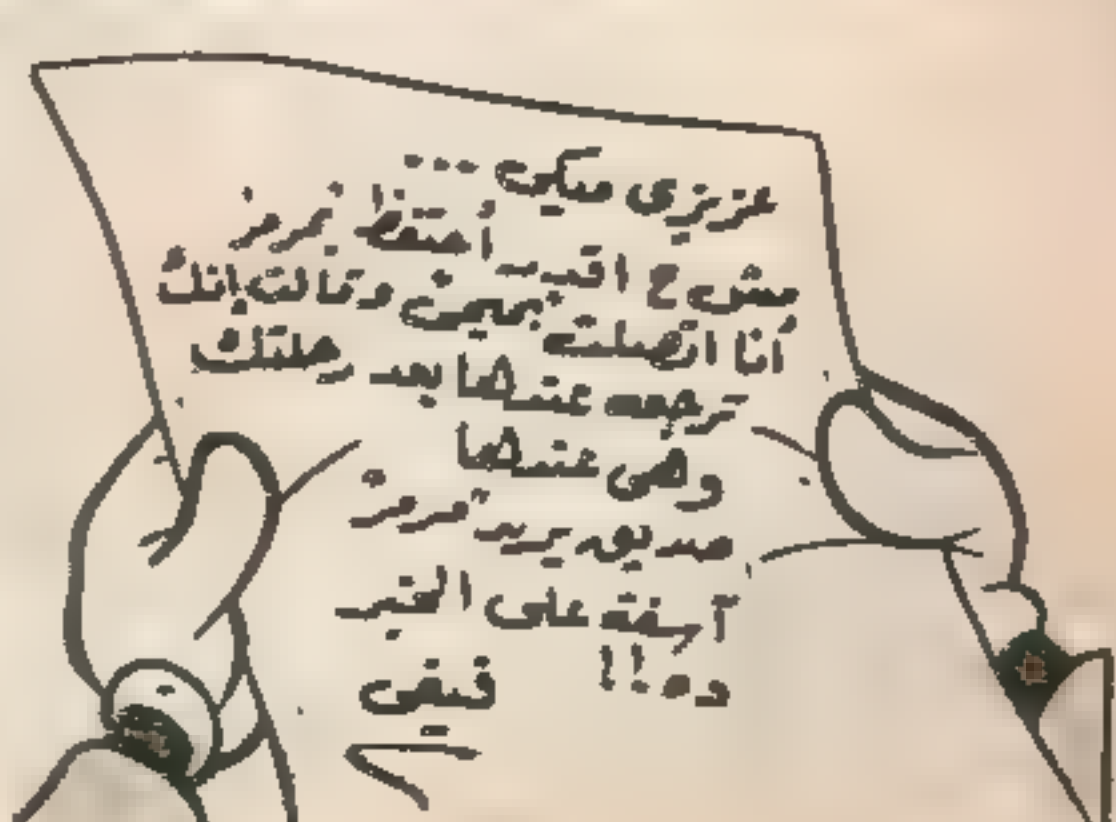 عزيزى ميكى ...
مش ح اقدر أحتفظ برمز
أنا اتصلت بميمى وقالت إنك
ترجعه عندها بعد رحلتك
وهى عندها
صديق يريد "رمز"
آسفة على الخبر
ده !!
فيفى